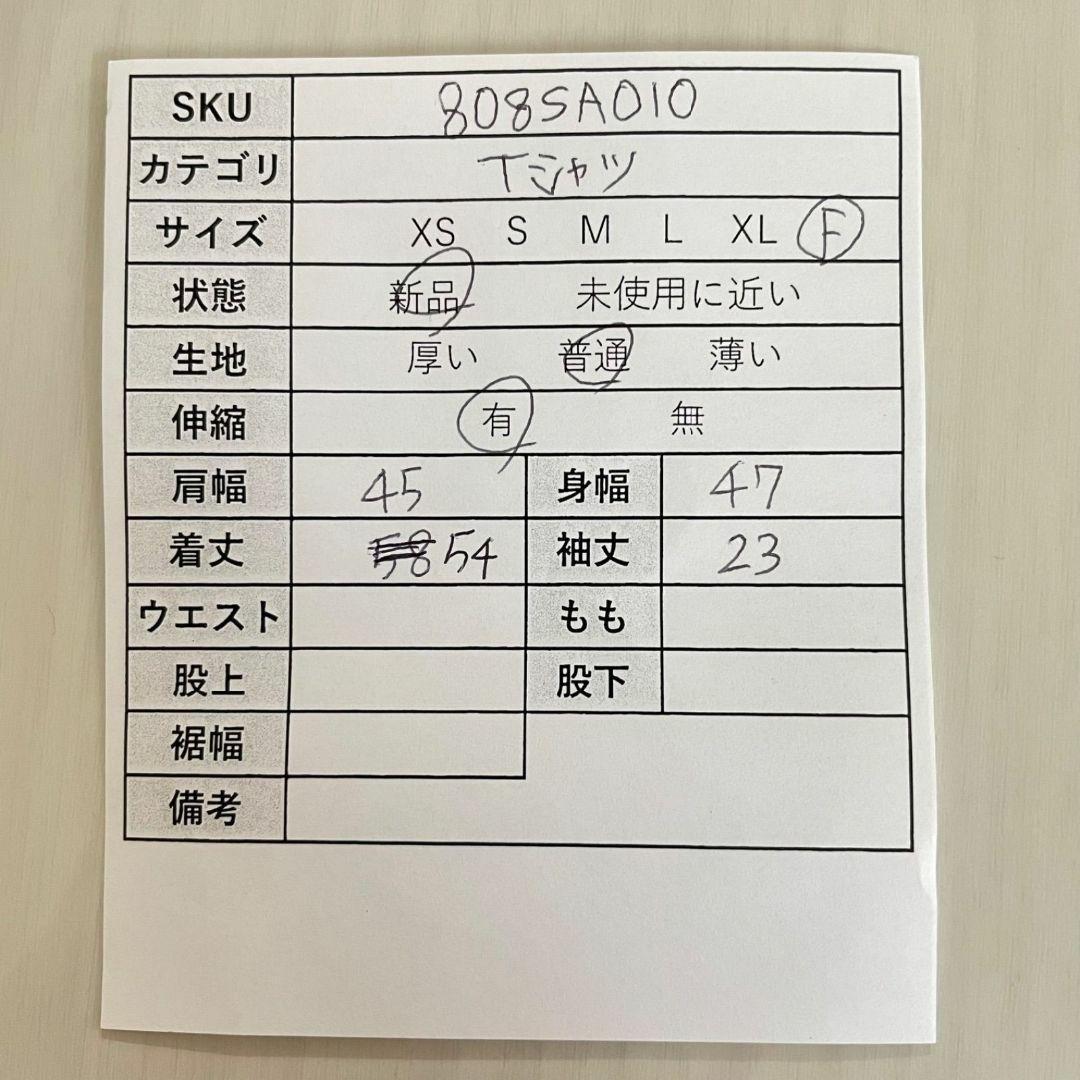 SKU 808SA010
カテゴリ Tシャツ
サイズ XS S M L XL F
状態 新品 未使用に近い
生地 厚い 普通 薄い
伸縮 有 無
肩幅 45 身幅 47
着丈 58 54 袖丈 23
ウエスト もも
股上 股下
裾幅
備考